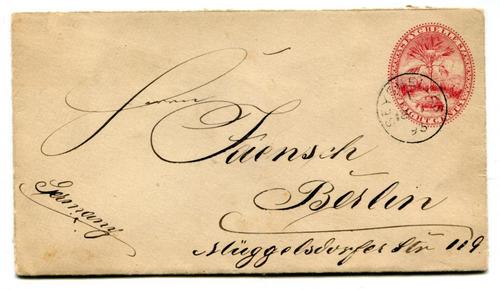 SEYCHELLES
EIGHT CENTS
SEYCHELLES
95
Herrn
Faensch
Berlin
Germany
Müggelsdorfer Str 119